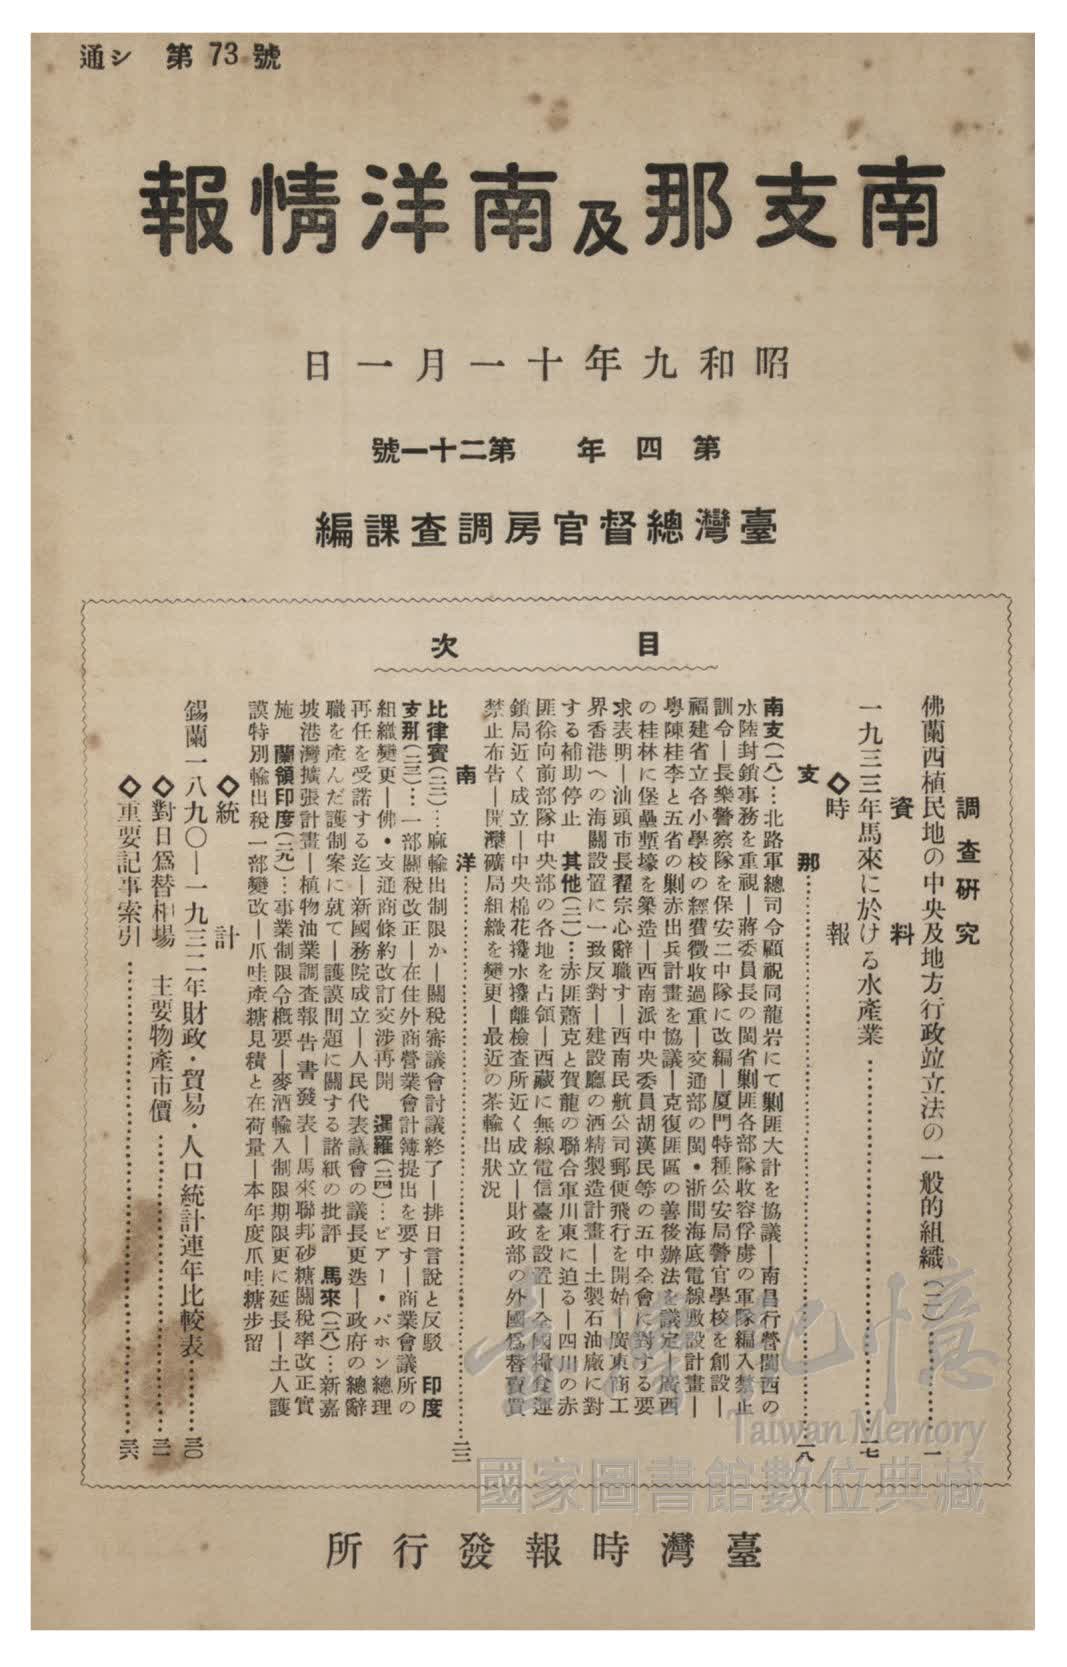 通シ 第73號
南支那及南洋情報
昭和九年十一月一日
第四年 第二十一號
臺灣總督官房調查課編
目次
調查硏究
佛蘭西植民地の中央及地方行政竝立法の一般的組織(二)……一
資料
一九三三年馬來に於ける水產業……一七
◇時報
支那……一八
南支(一八)…北路軍總司令顧祝同龍岩にて剿匪大計を協議―南昌行營閩西の
水陸封鎖事務を重視―蔣委員長の閩省剿匪各部隊收容俘虜の軍隊編入禁止
訓令―長樂警察隊を保安二中隊に改編―厦門特種公安局警官學校を創設―
福建省立各小學校の經費徵收過重―交通部の閩・浙間海底電線敷設計畫―
粵陳桂李と五省の剿赤出兵計畫を協議―克復匪區の善後辦法を議定―廣西
の桂林に堡壘塹壕を築造―西南派中央委員胡漢民等の五中全會に對する要
求表明―汕頭市長翟宗心辭職す―西南民航公司郵便飛行を開始―廣東商工
界香港への海關設置に一致反對―建設廳の酒精製造計畫―土製石油廠に對
する補助停止 其他(二一)…赤匪蕭克と賀龍の聯合軍川東に迫る―四川の赤
匪徐向前部隊中央部の各地を占領―西藏に無線電信臺を設置―全國糧食運
銷局近く成立―中央棉花攙水攙雜檢查所近く成立―財政部の外國爲替賣買
禁止布告―開灤礦局組織を變更―最近の茶輸出狀況
南洋……二三
比律賓(二三)…麻輸出制限か―關稅審議會討議終了―排日言說と反駁 印度
支那(二三)…一部關稅改正―在住外商營業會計簿提出を要す―商業會議所の
組織變更―佛・支通商條約改訂交涉再開 暹羅(二四)…ピアー・パホン總理
再任を受諾する迄―新國務院成立―人民代表議會の議長更迭―政府の總辭
職を產んだ護制案に就て―護謨問題に關する諸紙の批評 馬來(二八)…新嘉
坡港灣擴張計畫―植物油業調査報告書發表―馬來聯邦砂糖關稅率改正實
施 蘭領印度(二九)…事業制限令槪要―麥酒輸入制限期限更に延長―土人護
謨特別輸出稅一部變改―爪哇產糖見積と在荷量―本年度爪哇糖步留
◇統計
錫蘭一八九〇―一九三二年財政・貿易・人口統計連年比較表……三〇
◇對日爲替相場 主要物產市價……三二
◇重要記事索引……三六
臺灣時報發行所
臺灣記憶
Taiwan Memory
國家圖書館數位典藏